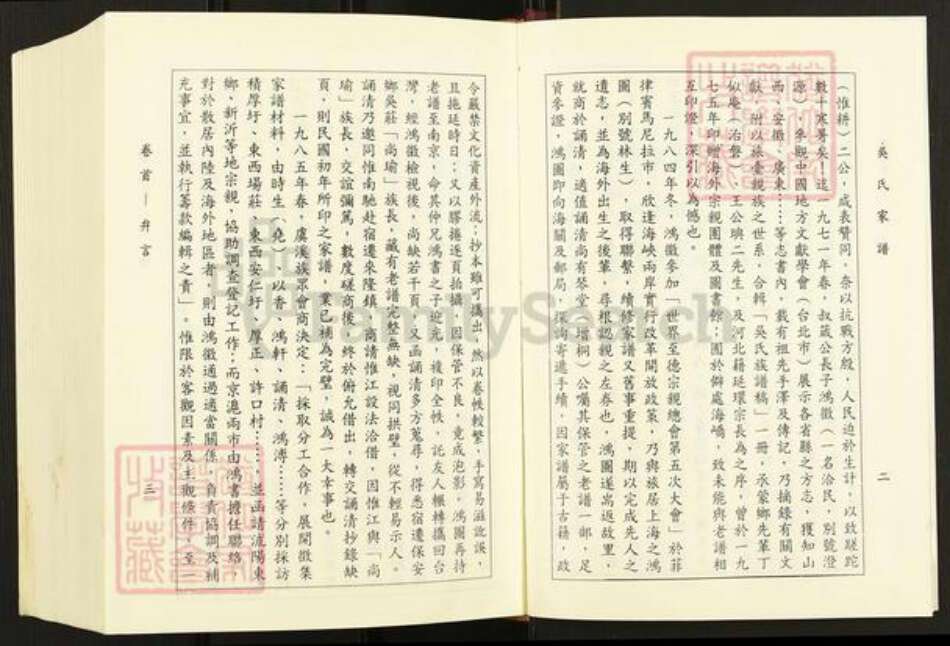 吳氏家譜
二
（惟耕）二公，咸表贊同，奈以抗戰方殷，人民迫於生計，以致蹉跎
數十寒暑矣！迄一九七一年春，叔葳公長子鴻徽（一名洽民，別號澄
源），參觀中國地方文獻學會（台北市）展示各省縣之方志，獲知山
西、安徽、廣東……等志書內，載有祖先手澤及傳記，乃摘錄有關文
獻，附以旅臺親族之世系，合輯「吳氏族譜稿」一冊，承蒙鄉先輩丁
似庵（治磐）、王公璵二先生，及河北籍延環宗長為之序，曾於一九
七五年印贈海外宗親團體及圖書館；囿於僻處海嶠，致未能與老譜相
互印證，深引以為憾也。
一九八四年冬，鴻徽參加「世界至德宗親總會第五次大會」於菲
律賓馬尼拉市，欣逢海峽兩岸實行改革開放政策，乃與旅居上海之鴻
圖（別號林生），取得聯繫，續修家譜又舊事重提，期以完成先人之
遺志，並為海外出生之後輩，尋根認親之左券也，鴻圖遂耑返故里，
就商於誦清，適值誦清尚有琴堂（增桐）公囑其保管之老譜一部，足
資參證，鴻圖即向海關及郵局，探詢寄遞手續，因家譜屬于古籍，政
令嚴禁文化資產外流；抄本雖可攜出，然以卷帙較繁，手寫易滋訛誤，
且拖延時日；又以膠捲逐頁拍攝，因保管不良，竟成泡影，鴻圖再持
老譜至南京，命其仲兄鴻書之子迎光，複印全帙，託友人輾轉攜回台
灣，經鴻徽檢視後，尚缺若干頁，又函誦清多方蒐尋，得悉宿遷保安
鄉吳莊「尚瑜」族長，藏有老譜完整無缺，視同拱璧，從不輕易示人。
誦清乃邀同惟南馳赴宿遷來隆鎮，商請惟江設法洽借，因惟江與「尚
瑜」族長，交誼彌篤，數度磋商後，終於俯允借出，轉交誦清抄錄缺
頁，則民國初年所印之家譜，業已補為完璧，誠為一大幸事也。
一九八五年春，虞溪族眾會商決定：「採取分工合作，展開徵集
家譜材料，由時生（堯）以香、鴻軒、誦清、鴻溥……等分別採訪
積厚圩、東西場莊、東西安仁圩、厚正、許口村……，並函請沭陽東
鄉、新沂等地宗親，協助調查登記工作；而京滬兩市由鴻書擔任聯絡
對於散居內陸及海外地區者，則由鴻徽通過適當關係，負責協調及補
充事宜，並執行籌款編輯之責」。惟限於客觀因素及主觀條件，至一
卷首－弁言
三